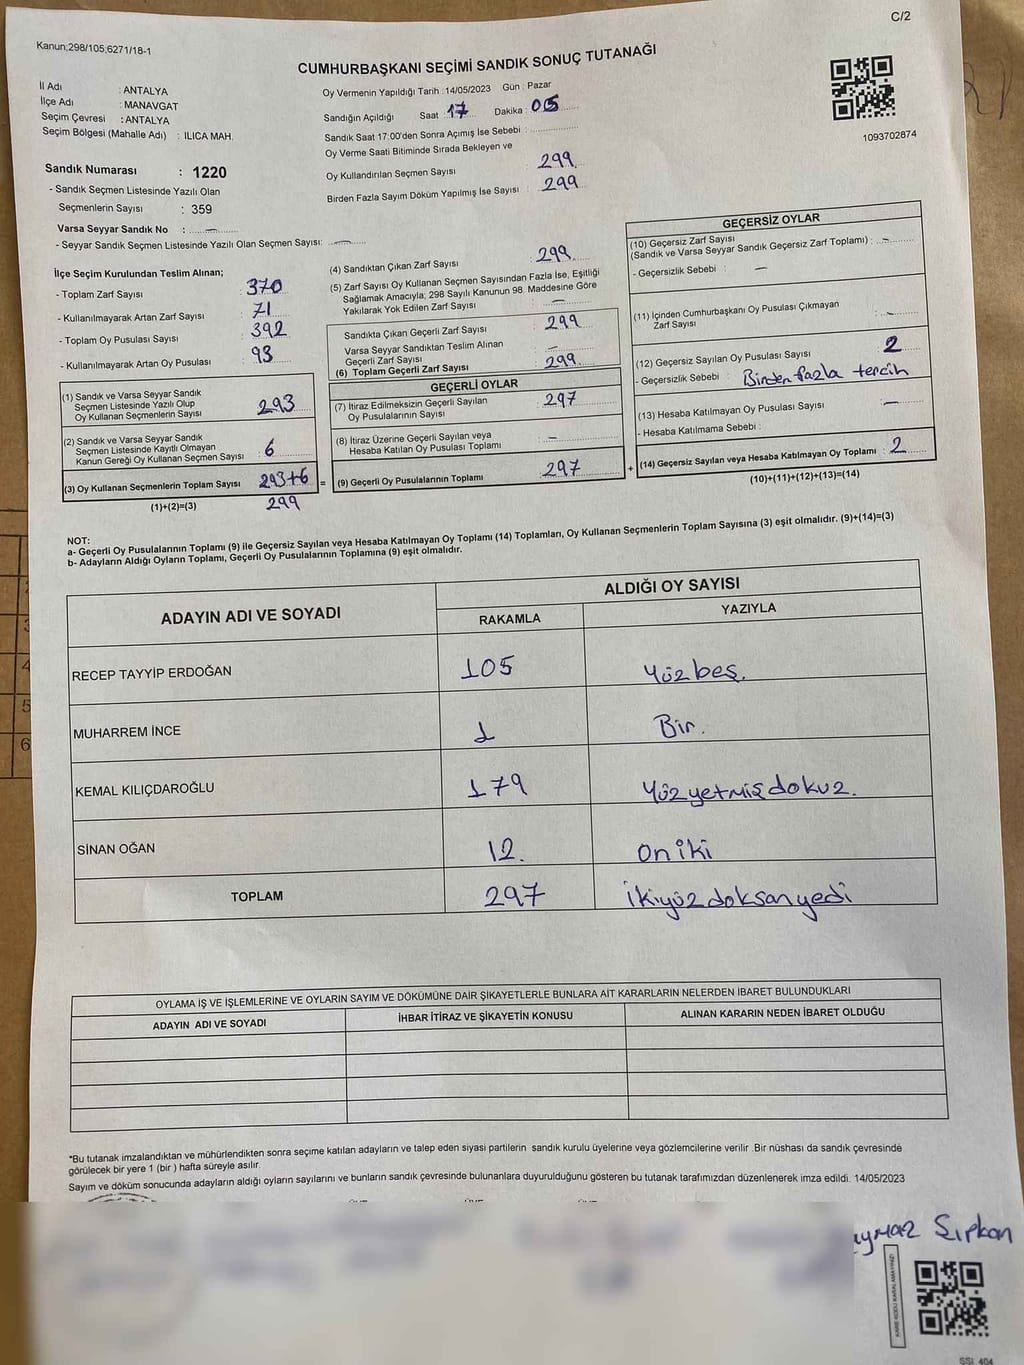 C/2
Kanun;298/105,6271/18-1
CUMHURBAŞKANI SEÇİMİ SANDIK SONUÇ TUTANAĞI
1093702874
İl Adı : ANTALYA
İlçe Adı : MANAVGAT
Seçim Çevresi : ANTALYA
Seçim Bölgesi (Mahalle Adı) : ILICA MAH.
Oy Vermenin Yapıldığı Tarih : 14/05/2023 Gün : Pazar
Sandığın Açıldığı Saat : 17 Dakika : 05
Sandık Saat 17:00'den Sonra Açımış İse Sebebi :
Oy Verme Saati Bitiminde Sırada Bekleyen ve
Oy Kullandırılan Seçmen Sayısı : 299
Birden Fazla Sayım Döküm Yapılmış İse Sayısı : 299
Sandık Numarası : 1220
- Sandık Seçmen Listesinde Yazılı Olan
Seçmenlerin Sayısı : 359
Varsa Seyyar Sandık No : —
- Seyyar Sandık Seçmen Listesinde Yazılı Olan Seçmen Sayısı: —
İlçe Seçim Kurulundan Teslim Alınan;
- Toplam Zarf Sayısı 370
- Kullanılmayarak Artan Zarf Sayısı 71
- Toplam Oy Pusulası Sayısı 392
- Kullanılmayarak Artan Oy Pusulası 93
(1) Sandık ve Varsa Seyyar Sandık
Seçmen Listesinde Yazılı Olup
Oy Kullanan Seçmenlerin Sayısı 293
(2) Sandık ve Varsa Seyyar Sandık
Seçmen Listesinde Kayıtlı Olmayan
Kanun Gereği Oy Kullanan Seçmen Sayısı : 6
(3) Oy Kullanan Seçmenlerin Toplam Sayısı 293+6 =
(1)+(2)=(3) 299
(4) Sandıktan Çıkan Zarf Sayısı : 299
(5) Zarf Sayısı Oy Kullanan Seçmen Sayısından Fazla İse, Eşitliği
Sağlamak Amacıyla; 298 Sayılı Kanunun 98. Maddesine Göre
Yakılarak Yok Edilen Zarf Sayısı : —
Sandıkta Çıkan Geçerli Zarf Sayısı : 299
Varsa Seyyar Sandıktan Teslim Alınan
Geçerli Zarf Sayısı : —
(6) Toplam Geçerli Zarf Sayısı : 299
GEÇERLİ OYLAR
(7) İtiraz Edilmeksizin Geçerli Sayılan
Oy Pusulalarının Sayısı : 297
(8) İtiraz Üzerine Geçerli Sayılan veya
Hesaba Katılan Oy Pusulası Toplamı : —
(9) Geçerli Oy Pusulalarının Toplamı : 297 +
GEÇERSİZ OYLAR
(10) Geçersiz Zarf Sayısı
(Sandık ve Varsa Seyyar Sandık Geçersiz Zarf Toplamı) : —
- Geçersizlik Sebebi : —
(11) İçinden Cumhurbaşkanı Oy Pusulası Çıkmayan
Zarf Sayısı : —
(12) Geçersiz Sayılan Oy Pusulası Sayısı : 2
- Geçersizlik Sebebi : Birden fazla tercih
(13) Hesaba Katılmayan Oy Pusulası Sayısı : —
- Hesaba Katılmama Sebebi :
(14) Geçersiz Sayılan veya Hesaba Katılmayan Oy Toplamı : 2
(10)+(11)+(12)+(13)=(14)
NOT:
a- Geçerli Oy Pusulalarının Toplamı (9) ile Geçersiz Sayılan veya Hesaba Katılmayan Oy Toplamı (14) Toplamları, Oy Kullanan Seçmenlerin Toplam Sayısına (3) eşit olmalıdır. (9)+(14)=(3)
b- Adayların Aldığı Oyların Toplamı, Geçerli Oy Pusulalarının Toplamına (9) eşit olmalıdır.
ADAYIN ADI VE SOYADI ALDIĞI OY SAYISI
RAKAMLA YAZIYLA
RECEP TAYYİP ERDOĞAN 105 Yüzbeş.
MUHARREM İNCE 1 Bir.
KEMAL KILIÇDAROĞLU 179 Yüzyetmişdokuz.
SİNAN OĞAN 12. Oniki
TOPLAM 297 İkiyüzdoksanyedi
OYLAMA İŞ VE İŞLEMLERİNE VE OYLARIN SAYIM VE DÖKÜMÜNE DAİR ŞİKAYETLERLE BUNLARA AİT KARARLARIN NELERDEN İBARET BULUNDUKLARI
ADAYIN ADI VE SOYADI İHBAR İTİRAZ VE ŞİKAYETİN KONUSU ALINAN KARARIN NEDEN İBARET OLDUĞU
*Bu tutanak imzalandıktan ve mühürlendikten sonra seçime katılan adayların ve talep eden siyasi partilerin sandık kurulu üyelerine veya gözlemcilerine verilir .Bir nüshası da sandık çevresinde
görülecek bir yere 1 (bir ) hafta süreyle asılır.
Sayım ve döküm sonucunda adayların aldığı oyların sayılarını ve bunların sandık çevresinde bulunanlara duyurulduğunu gösteren bu tutanak tarafımızdan düzenlenerek imza edildi. 14/05/2023
KARE KODU KARALAMAYINIZ!
SSL 404